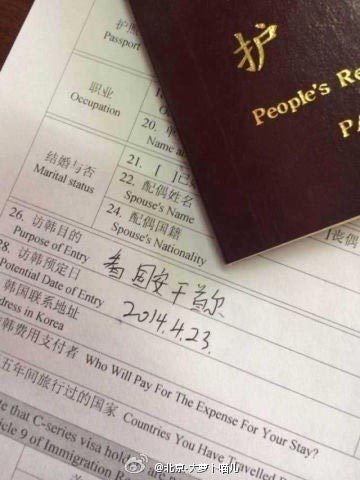 护照
Passport
护
People's Re
职业
Occupation
20.
Name a
结婚与否
Marital status
21. [ ]已
22. 配偶姓名
Spouse's Name
24. 配偶国籍
Spouse's Nationality
]丧偶
26. 访韩目的
Purpose of Entry
看 同安于首尔
28. 访韩预定日
Potential Date of Entry
2014.4.23.
韩国联系地址
Address in Korea
访韩费用支付者 Who Will Pay For The Expense For Your Stay?
五年间旅行过的国家 Countries You Have Travelled
te that C-series visa hold
ticle 9 of Immigration
@北京-大萝卜喵儿